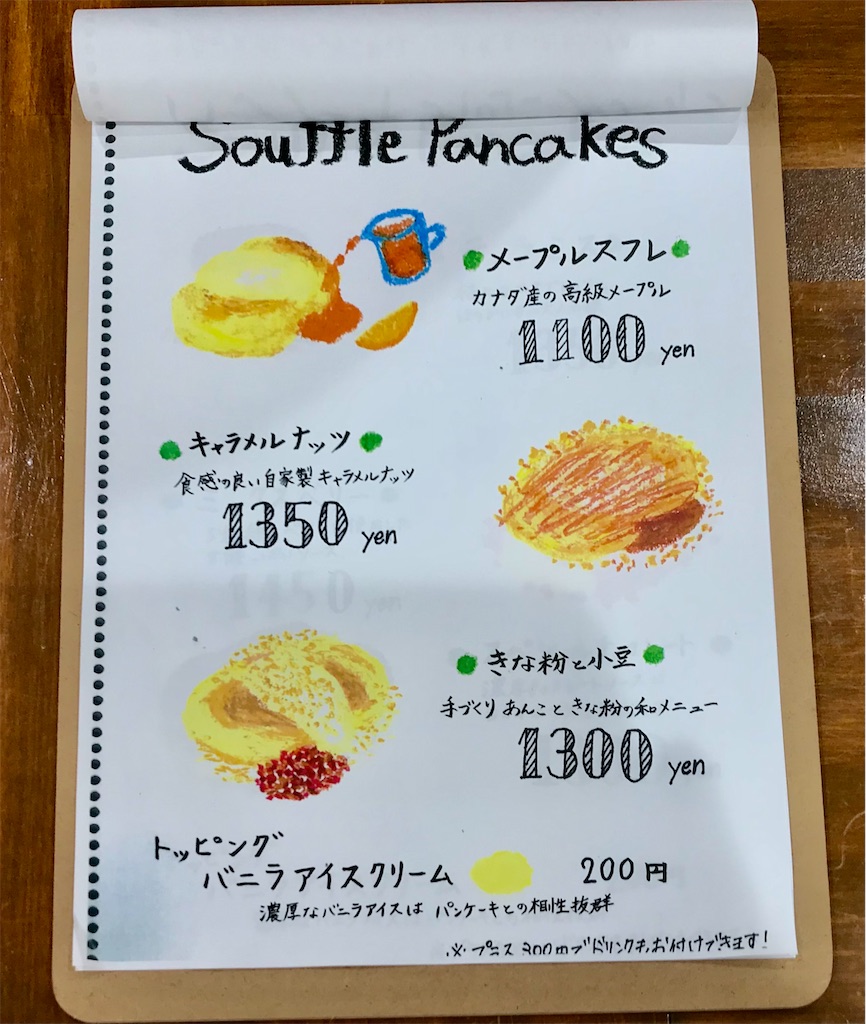 Souffle Pancakes
メープルスフレ
カナダ産の高級メープル
1100 yen
キャラメルナッツ
食感の良い自家製キャラメルナッツ
1350 yen
きな粉と小豆
手づくりあんこときな粉の和メニュー
1300 yen
トッピング
バニラアイスクリーム 200円
濃厚なバニラアイスは パンケーキとの相性抜群
※プラス300円でドリンクもお付けできます!